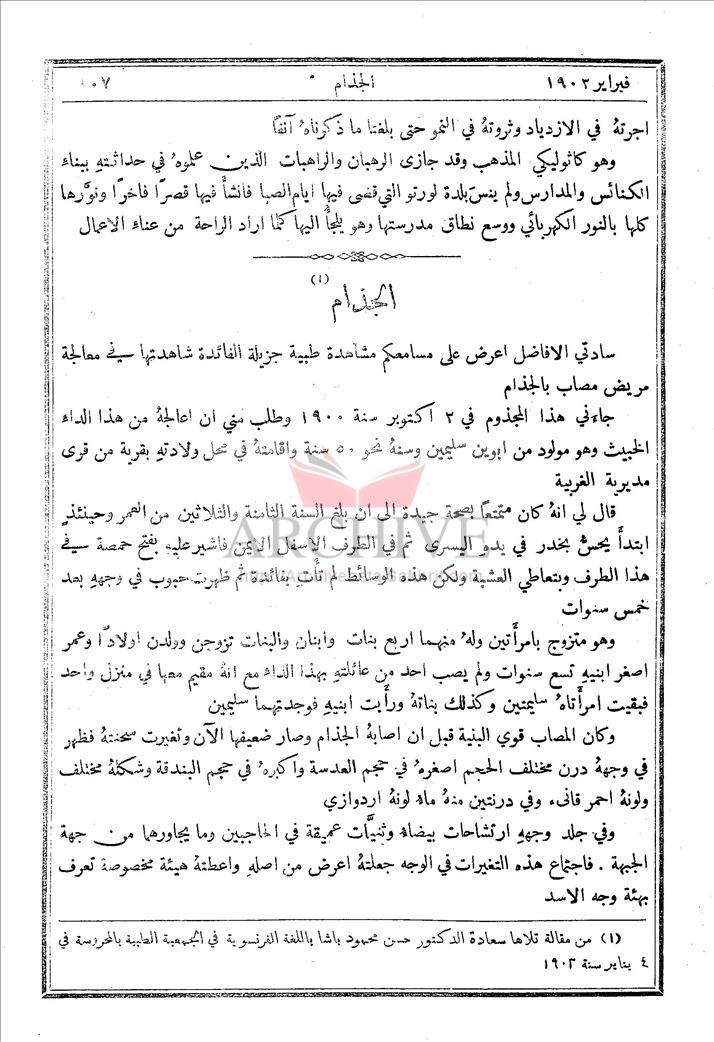 فبراير ١٩٠٢ الجذام ٠٧
اجرتهُ في الازدياد وثروتهُ في النمو حتى بلغتا ما ذكرناهُ آنفًا
وهو كاثوليكي المذهب وقد جازى الرهبان والراهبات الذين علموهُ في حداثتهِ ببناء
الكنائس والمدارس ولم ينسَ بلدة لورتو التي قضى فيها ايام الصبا فانشأ فيها قصرًا فاخرًا ونوَّرها
كلها بالنور الكهربائي ووسع نطاق مدرستها وهو يلجأُ اليها كلما اراد الراحة من عناء الاعمال
الجذام (١)
سادتي الافاضل اعرض على مسامعكم مشاهدة طبية جزيلة الفائدة شاهدتها في معالجة
مريض مصاب بالجذام
جاءني هذا المجذوم في ٢ اكتوبر سنة ١٩٠٠ وطلب مني ان اعالجهُ من هذا الداء
الخبيث وهو مولود من ابوين سليمين وسنهُ نحو ٥٠ سنة واقامتهُ في محل ولادتهِ بقرية من قرى
مديرية الغربية
قال لي انهُ كان متمتعًا بصحة جيدة الى ان بلغ السنة الثامنة والثلاثين من العمر وحينئذٍ
ابتدأَ يحسُّ بخدر في يدهِ اليسرى ثم في الطرف الاسفل الايمن فاشير عليهِ بفتح حمصة في
هذا الطرف وبتعاطي العشبة ولكن هذه الوسائط لم تأْتِ بفائدة ثم ظهرت حبوب في وجههِ بعد
خمس سنوات
وهو متزوج بامرأَتين ولهُ منهما اربع بنات وابنان والبنات تزوجن وولدن اولادًا وعمر
اصغر ابنيهِ تسع سنوات ولم يصب احد من عائلتهِ بهذا الداء مع انهُ مقيم معها في منزل واحد
فبقيت امرأَتاهُ سليمتين وكذلك بناتهُ ورأَيت ابنيهِ فوجدتهما سليمين
وكان المصاب قوي البنية قبل ان اصابهُ الجذام وصار ضعيفها الآن وتغيرت سحنتهُ فظهر
في وجههِ درن مختلف الحجم اصغرهُ في حجم العدسة واكبرهُ في حجم البندقة وشكلهُ مختلف
ولونهُ احمر قانئ وفي درنتين منهُ مادة لونهُ اردوازي
وفي جلد وجههِ ارتشاحات بيضاء وثنيَّات عميقة في الحاجبين وما يجاورهما من جهة
الجبهة . فاجتماع هذه التغيرات في الوجه جعلتهُ اعرض من اصلهِ واعطتهُ هيئة مخصوصة تعرف
بهئة وجه الاسد
(١) من مقالة تلاها سعادة الدكتور حسن محمود باشا باللغة الفرنسوية في الجمعية الطبية بالمحروسة في
٤ يناير سنة ١٩٠٢
ARCHIVE